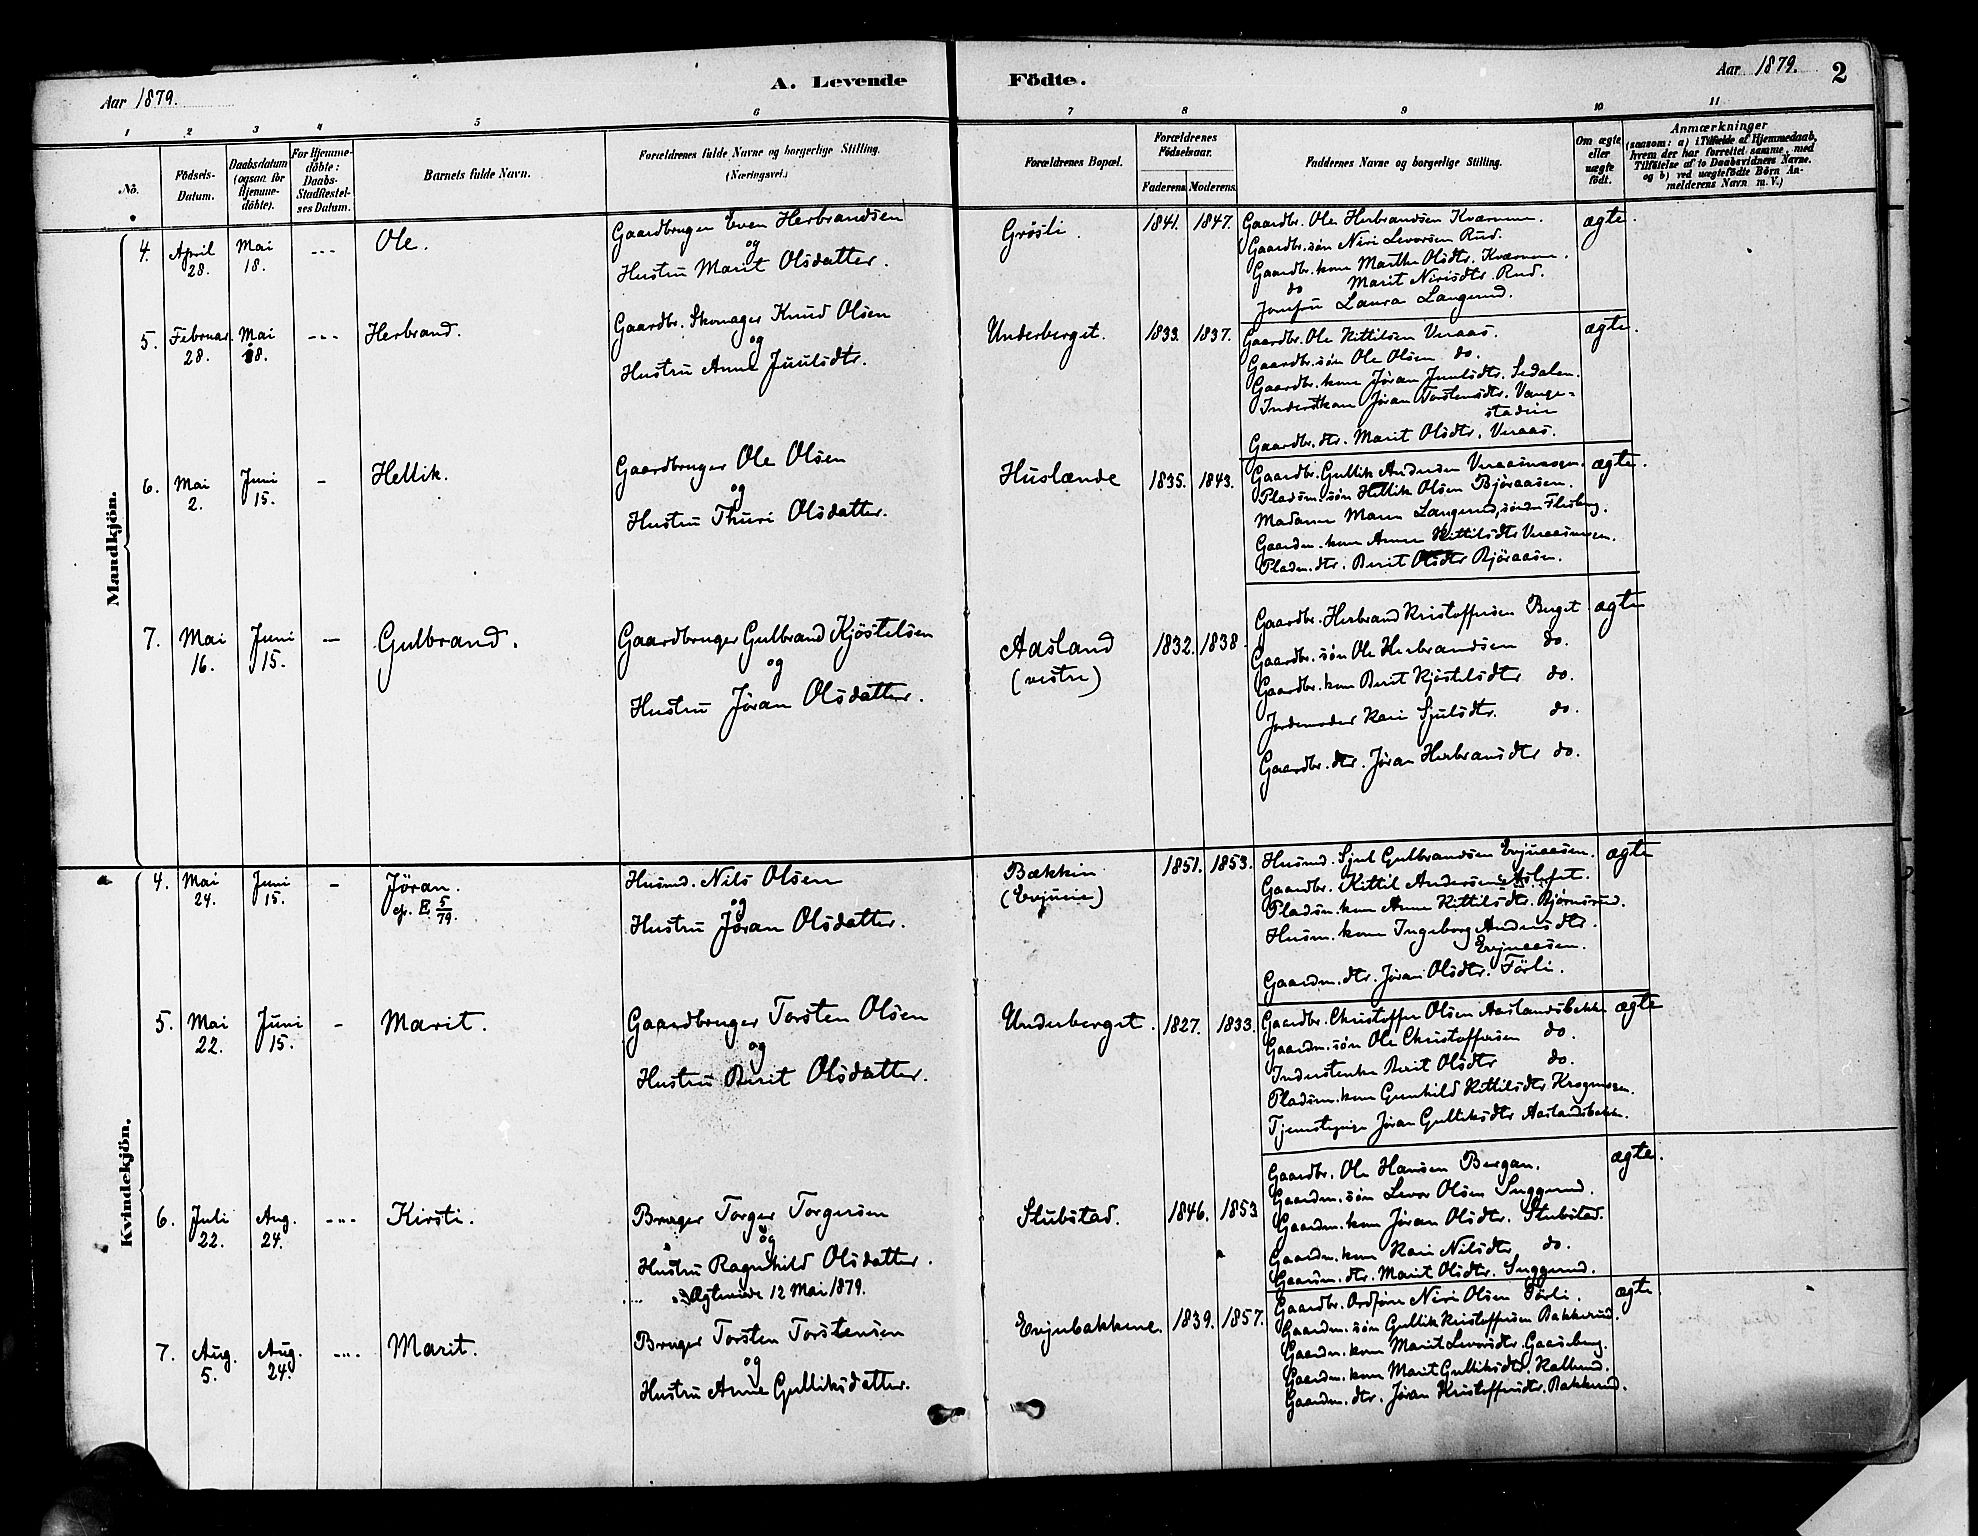 Aar 1879.
A. Levende
Födte.
Aar 1879.
2
1 2 3 4 5 6 7 8 9 10 11
No.
Födsels-
Datum.
Daabsdatum
(ogsaa for
Hjemme-
döbte).
For Hjemme-
döbte:
Daabs-
Stadfestel-
ses Datum.
Barnets fulde Navn.
Forældrenes fulde Navne og borgerlige Stilling.
(Næringsvei.)
Forældrenes Bopæl.
Forældrenes
Födselsaar.
Faderens. Moderens.
Faddernes Navne og borgerlige Stilling.
Om ægte
eller
uægte
født.
Anmærkninger
(saasom: a) i Tilfælde af Hjemmedaab,
hvem der har forrettet samme, med
Tilföielse af to Daabsvidners Navne.
og b) ved uægtefödte Börn An-
melderens Navn m. V.)
Mandkjön.
4.
April
28.
Mai
18.
Ole.
Gaardbruger Even Herbrandsen
og
Hustru Marit Olsdatter.
Grösli.
1841. 1847.
Gaardbr. Ole Herbrandsen Kværnm.
Gaardbr. søn Niri Levorsen Rud.
Gaardbr. kone Marthe Olsdtr. Kværnm.
do Marit Nirisdtr. Rud.
Jomfru Laura Langerud.
ægte.
5.
Februar
28.
Mai
18.
Herbrand.
Gaardbr. Skomager Knud Olsen
og
Hustru Anne Juulsdtr.
Underberget.
1833. 1837.
Gaardbr. Ole Kittilsen Veraas.
Gaardbr. søn Ole Olsen do.
Gaardbr. kone Jøran Juulsdtr. Sedalen.
Inderstkone Jøran Torstensdtr. Vange-
stadeie
Gaardbr. dtr. Marit Olsdtr. Veraas.
ægte.
6.
Mai
2.
Juni
15.
Hellik.
Gaardbruger Ole Olsen
og
Hustru Thuri Olsdatter.
Huslænde
1835. 1843.
Gaardbr. Gullik Andersen Veraasmogen.
Pladsm. søn Hellik Olsen Bjøraasen.
Madame Maren Langerud, søndre Flesberg.
Gaardm. kone Anne Kittilsdtr Veraasmogen.
Pladsm. dtr. Berit Olsdtr Bjøraasen.
ægte.
7.
Mai
16.
Juni
15.
Gulbrand.
Gaardbruger Gulbrand Kjöstelsen
og
Hustru Jöran Olsdatter.
Aasland
(vestre)
1832. 1838.
Gaardbr. Herbrand Kristoffersen Berget
Gaardbr. søn Ole Herbrandsen do.
Gaardbr. kone Berit Kjöstelsdtr do.
Jordemoder Kari Sjulsdtr. do.
Gaardbr. dtr. Jøran Herbransdtr do.
ægte
Kvindekjön.
4.
Mai
24.
Juni
15.
Jöran.
cfr. E 5/79.
Husmd. Nils Olsen
og
Hustru Jöran Olsdatter.
Bækkin
(Evjueie)
1851. 1853.
Husmd. Sjul Gulbrandsen Evjuaasen.
Gaardbr. Kittil Andersen Aslefet.
Pladsm. kone Anne Kittilsdtr. Bjørnsrud.
Husm. kone Ingeborg Andersdtr.
Evjuaasen.
Gaardm. dtr. Jøran Olsdtr. Förli.
ægte
5.
Mai
22.
Juni
15.
Marit.
Gaardbruger Torsten Olsen
og
Hustru Berit Olsdatter.
Underberget.
1827. 1833.
Gaardbr. Christoffer Olsen Aaslandsbekk
Gaardm. søn Ole Christoffersen do.
Inderstenke Berit Olsdtr do.
Pladsm. kone Gunhild Kittilsdtr Krogmogen.
Tjenestepige Jøran Gulliksdtr Aaslandsbekk.
ægte
6.
Juli
22.
Aug.
24.
Kirsti.
Bruger Torger Torgersen
og
Hustru Ragnhild Olsdatter.
Ægteviede 12 Mai 1879.
Stubstad.
1846. 1853
Gaardbr. Ole Hansen Bergan.
Gaardm. søn Levor Olsen Suggerud.
Gaardm. kone Jøran Olsdtr. Stubstad.
Gaardm. kone Kari Nilsdtr do.
Gaardm. dtr. Marit Olsdtr. Suggerud.
ægte.
7.
Aug.
5.
Aug.
24.
Marit.
Bruger Torsten Torstensen
og
Hustru Anne Gulliksdatter.
Evjubakkene.
1839. 1857.
Gaardbr. Ordfører Niri Olsen Förli.
Gaardm. søn Gullik Kristoffersen Bakkerud.
Gaardm. kone Marit Levorsdtr. Gaasberg.
Gaardm. kone Marit Gulliksdtr. Kallerud.
Gaardm. dtr. Jøran Kristoffersdtr. Bakkerud.
ægte.